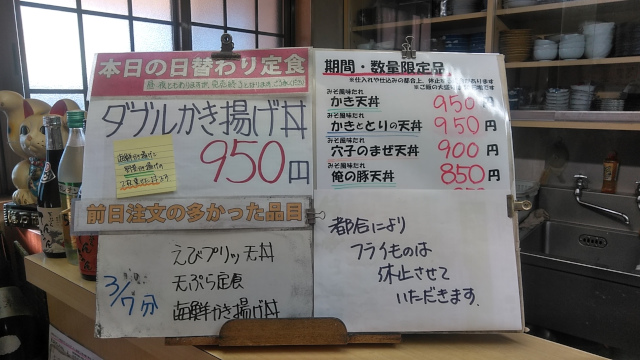 本日の日替わり定食
ダブルかき揚げ丼
海鮮かき揚げと
野菜かき揚げの
950円
前日注文の多かった品目
3/7分
えびプリッ天丼
天ぷら定食
海鮮かき揚げ丼
期間・数量限定品
みそ風味たれ
かき天丼 950円
みそ風味たれ
かきととりの天丼 950円
みそ風味たれ
穴子のまぜ天丼 900円
みそ風味たれ
俺の豚天丼 850円
都合により
フライものは
休止させて
いただきます.